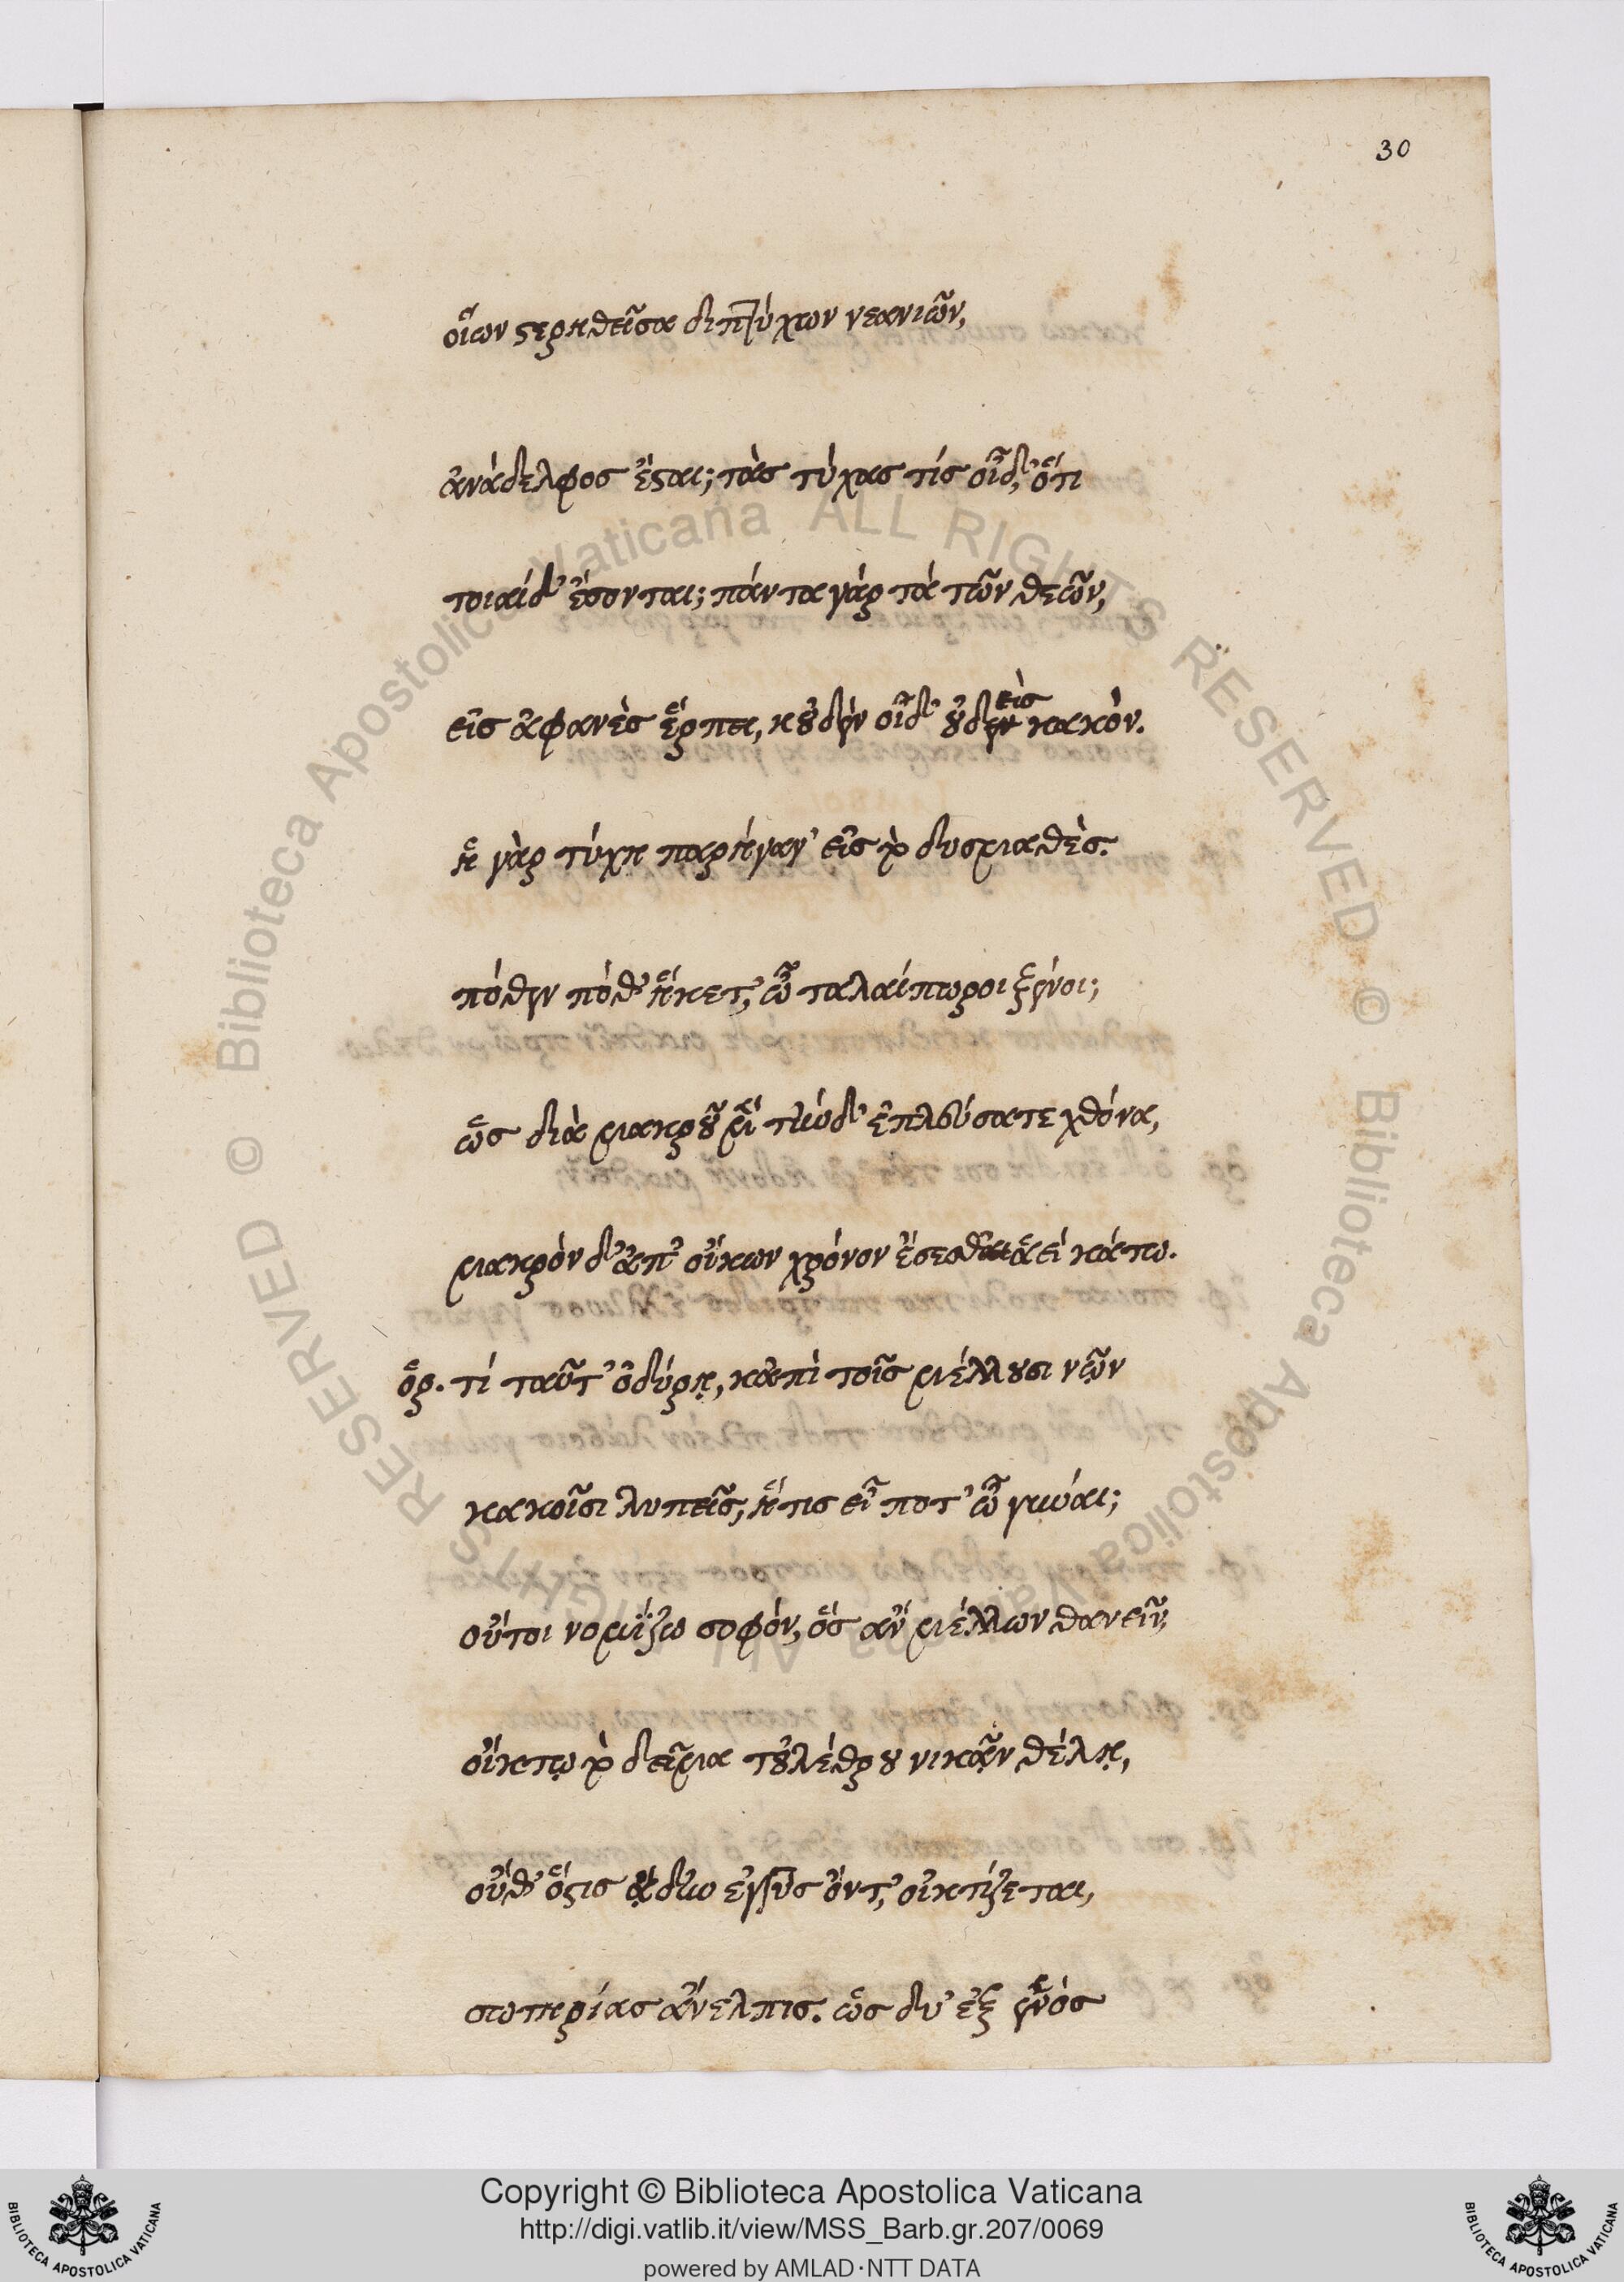 30
οἵων στερηθεῖσα διπτύχων νεανιῶν,
ἀνάδελφος ἔσται; τὰς τύχας τίς οἶδ', ὅτι
τοιαίδ' ἔσονται; πάντα γὰρ τὰ τῶν θεῶν,
εἰς ἀφανὲς ἕρπει, κοὐδὲν οἶδ' οὐδεὶς κακόν.
ἡ γὰρ τύχη παρήγαγ' εἰς τὸ δυσμαθές.
πόθεν πόθ' ἥκετ', ὦ ταλαίπωροι ξένοι;
ὡς διὰ μακροῦ μὲν τήνδ' ἐπλεύσατε χθόνα,
μακρὸν δ' ἀπ' οἴκων χρόνον ἔσεσθ' ἀεὶ κάτω.
ὀρ. τί ταῦτ' ὀδύρῃ, κἀπὶ τοῖς μέλλουσι νῷν
κακοῖσι λυπεῖς, ἥτις εἶ ποτ' ὦ γύναι;
οὔτοι νομίζω σοφόν, ὃς ἂν μέλλων θανεῖν,
οἴκτῳ τὸ δεῖμα τοὐλέθρου νικᾷν θέλῃ,
οὔθ' ὅστις ᾅδην ἐγγὺς ὄντ', οἰκτίζεται,
σωτηρίας ἄνελπις. ὡς δύ' ἐξ ἑνός
Copyright © Biblioteca Apostolica Vaticana
http://digi.vatlib.it/view/MSS_Barb.gr.207/0069
powered by AMLAD·NTT DATA
BIBLIOTECA APOSTOLICA VATICANA
BIBLIOTECA APOSTOLICA VATICANA
© Biblioteca Apostolica Vaticana ALL RIGHTS RESERVED
© Biblioteca Apostolica Vaticana ALL RIGHTS RESERVED